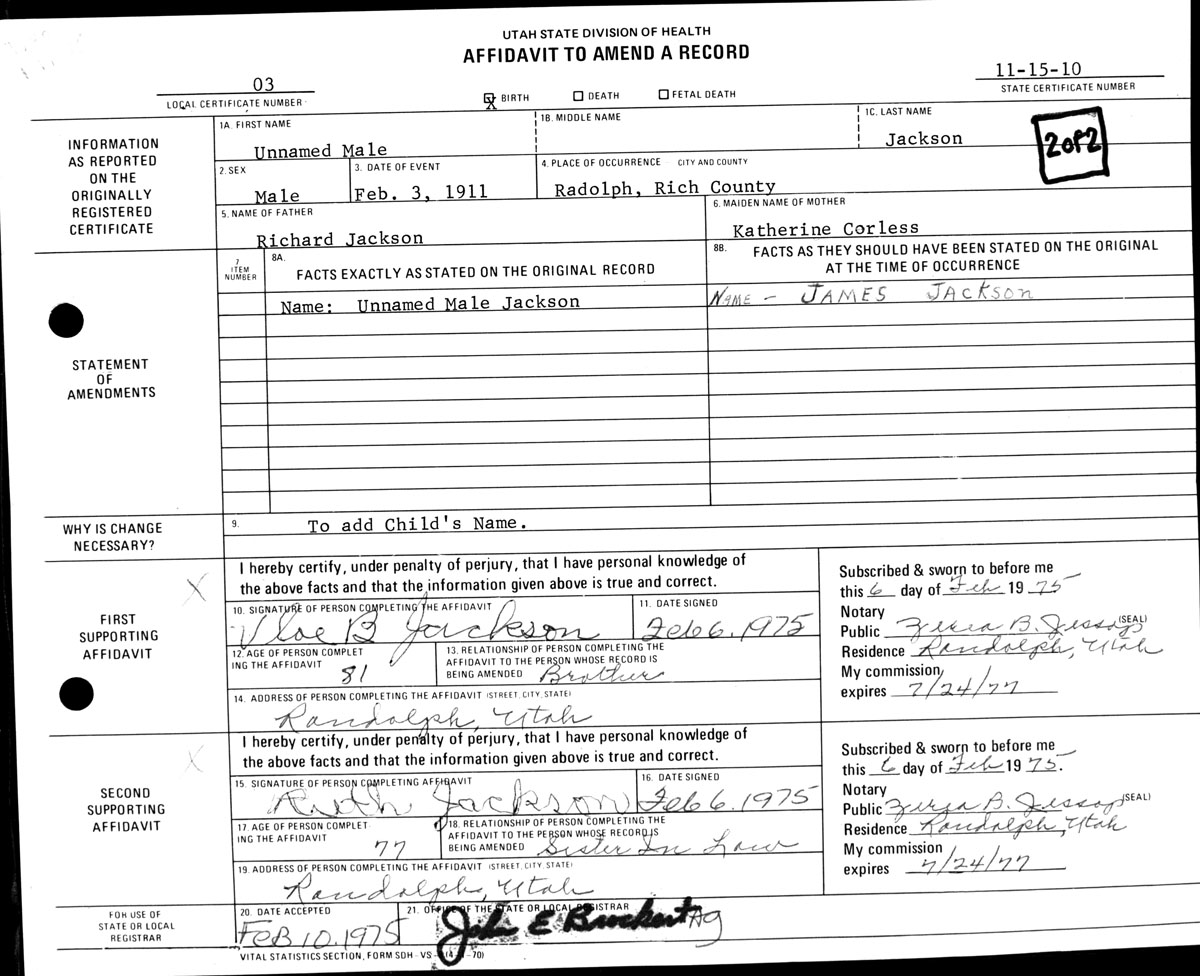 UTAH STATE DIVISION OF HEALTH
AFFIDAVIT TO AMEND A RECORD
03
LOCAL CERTIFICATE NUMBER
X BIRTH DEATH FETAL DEATH
11-15-10
STATE CERTIFICATE NUMBER
2 of 2
INFORMATION
AS REPORTED
ON THE
ORIGINALLY
REGISTERED
CERTIFICATE
1A. FIRST NAME
Unnamed Male
1B. MIDDLE NAME
1C. LAST NAME
Jackson
2. SEX
Male
3. DATE OF EVENT
Feb. 3, 1911
4. PLACE OF OCCURRENCE - CITY AND COUNTY
Radolph, Rich County
5. NAME OF FATHER
Richard Jackson
6. MAIDEN NAME OF MOTHER
Katherine Corless
STATEMENT
OF
AMENDMENTS
7
ITEM
NUMBER
8A.
FACTS EXACTLY AS STATED ON THE ORIGINAL RECORD
8B. FACTS AS THEY SHOULD HAVE BEEN STATED ON THE ORIGINAL
AT THE TIME OF OCCURRENCE
Name: Unnamed Male Jackson
NAME - JAMES JACKSON
WHY IS CHANGE
NECESSARY?
9. To add Child's Name.
X
FIRST
SUPPORTING
AFFIDAVIT
I hereby certify, under penalty of perjury, that I have personal knowledge of
the above facts and that the information given above is true and correct.
10. SIGNATURE OF PERSON COMPLETING THE AFFIDAVIT
B Jackson
11. DATE SIGNED
Feb 6, 1975
12. AGE OF PERSON COMPLET
ING THE AFFIDAVIT
81
13. RELATIONSHIP OF PERSON COMPLETING THE
AFFIDAVIT TO THE PERSON WHOSE RECORD IS
BEING AMENDED Brother
14. ADDRESS OF PERSON COMPLETING THE AFFIDAVIT (STREET, CITY, STATE)
Randolph, Utah
Subscribed & sworn to before me
this 6 day of Feb 1975
Notary
Public B. Jessop (SEAL)
Residence Randolph, Utah
My commission
expires 7/24/77
X
SECOND
SUPPORTING
AFFIDAVIT
I hereby certify, under penalty of perjury, that I have personal knowledge of
the above facts and that the information given above is true and correct.
15. SIGNATURE OF PERSON COMPLETING AFFIDAVIT
Ruth Jackson
16. DATE SIGNED
Feb 6, 1975
17. AGE OF PERSON COMPLET
ING THE AFFIDAVIT
77
18. RELATIONSHIP OF PERSON COMPLETING THE
AFFIDAVIT TO THE PERSON WHOSE RECORD IS
BEING AMENDED Sister In Law
19. ADDRESS OF PERSON COMPLETING THE AFFIDAVIT (STREET, CITY, STATE)
Randolph, Utah
Subscribed & sworn to before me
this 6 day of Feb 1975.
Notary
Public B. Jessop (SEAL)
Residence Randolph, Utah
My commission
expires 7/24/77
FOR USE OF
STATE OR LOCAL
REGISTRAR
20. DATE ACCEPTED
FEB 10, 1975
21. OFFICE OF THE STATE OR LOCAL REGISTRAR
John E Brockert
VITAL STATISTICS SECTION, FORM SDH - VS